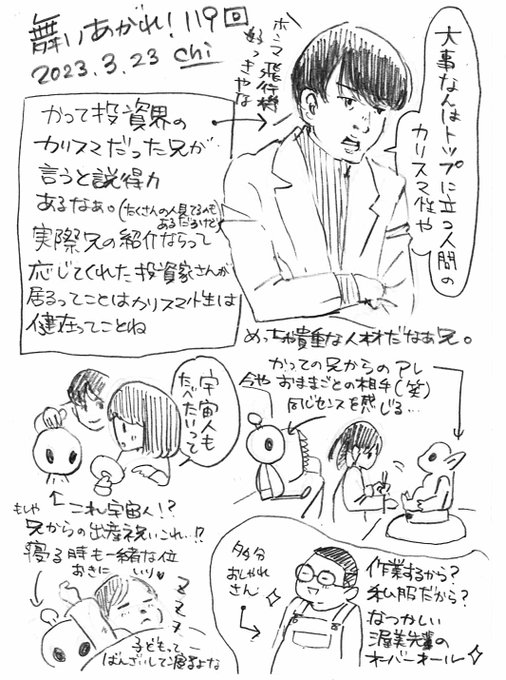 舞いあがれ！119回
2023.3.23 chi
ホンマ飛行機
好っきやな
大事なんはトップに立つ人間の
カリスマ性や
かつて投資界の
カリスマだった兄が
言うと説得力
あるなあ。(たくさんの人見てるのも
あるだろけど)
実際兄の紹介ならって
応じてくれた投資家さんが
居るってことはカリスマ性は
健在ってことね
めっちゃ貴重な人材だなあ兄。
宇宙人も
たべたいって
かつての兄からのアレ
今や
おままごとの相手(笑)
同じセンスを感じる…
これ宇宙人!?
もしや
兄からの出産祝いこれ…!?
寝る時も一緒な位
お気に
いり♥
ZZZ
子どもって
ばんざいして寝るよな
多分
おしゃれ
さん
作業するから？
私服だから？
なつかしい
渥美先輩の
オーバーオール